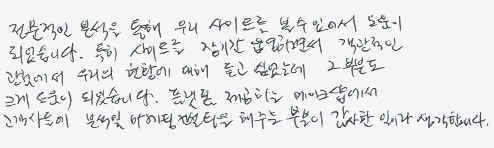 전문적인 분석을 통해 우리 사이트를 볼 수 있어서 도움이
되었습니다. 특히 사이트를 장기간 운영하면서 객관적인
관점에서 우리의 현황에 대해 듣고 싶었는데 그 부분도
크게 도움이 되었습니다. 플랫폼 제공하는 메이크샵에서
고객사들이 분석및 마케팅컨설팅을 해주는 부분이 감사한 일이라 생각합니다.